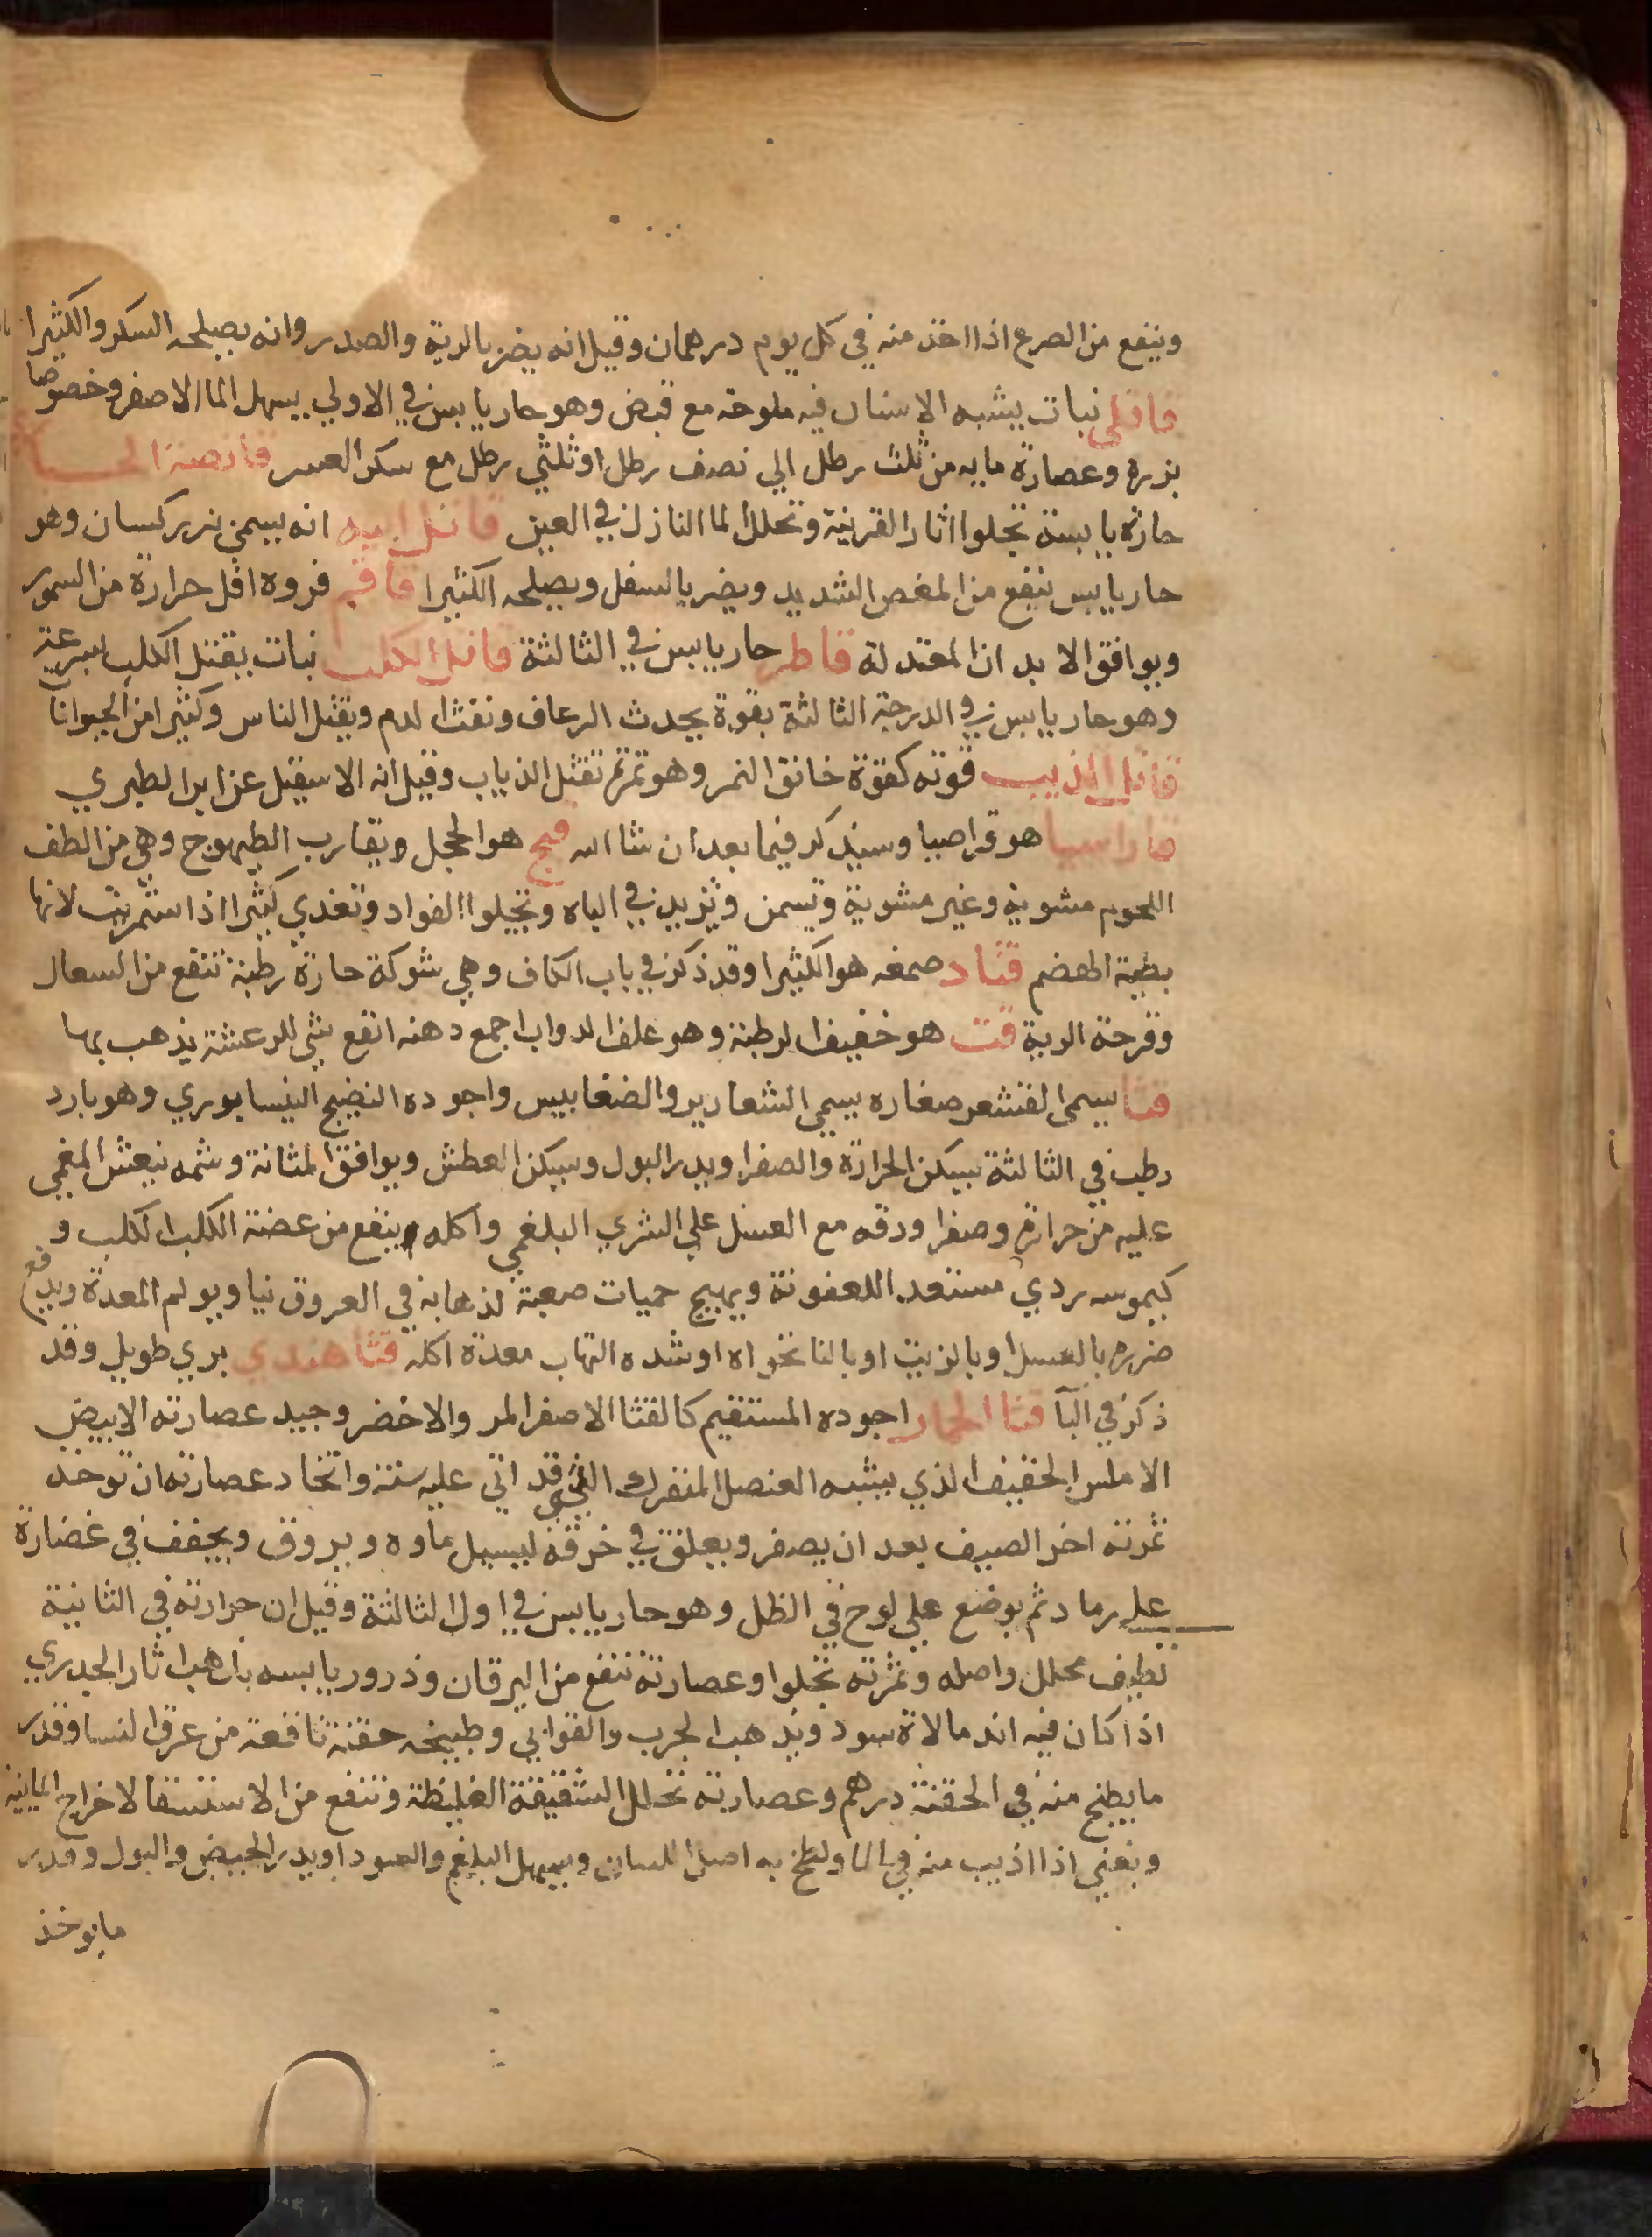 وينفع من الصرع اذا اخذ منه في كل يوم درهمان وقيل انه يضر بالرية والصدر وانه يصلحه السكر والكثيرا
قاقلي نبات يشبه الاشنان فيه ملوحة مع قبض وهو حار يابس في الاولي يسهل الما الاصفر وخصوصا
بزره وعصارة مايه من ثلث رطل الي نصف رطل او ثلثي رطل مع سكر العشر قانصة الحبارى
حارة يابسة تجلوا اثار القرنية وتحلل الما النازل في العين قاتل ابيه انه يسمي بزركسان وهو
حار يابس ينفع من المغص الشديد ويضر بالسفل ويصلحه الكثيرا قاقم فروه اقل حرارة من السمور
ويوافق الابدان المعتدلة قاطر حار يابس في الثالثة قاتل الكلب نبات يقتل الكلب لسرعة
وهو حار يابس في الدرجة الثالثة بقوة يحدث الرعاف ونفث الدم ويقتل الناس وكثيرا من الحيوانات
قاتل الذيب قوته كقوة خانق النمر وهو ثمر تقتل الذياب وقيل انه الاسقيل عن ابرا الطبري
قاراسيا هو قراصيا وسنذكر فيما بعد ان شا الله قبج هو الحجل ويقارب الطيهوج وهي من الطف
اللحوم مشوية وغير مشوية وتسمن وتزيد في الباه وتجلوا الفواد وتغدي كثيرا اذا استمريت لانها
بطية الهضم قتاد صمغه هو الكثيرا وقد ذكر في باب الكاف وهي شوكة حارة رطبة تنفع من السعال
وقرحة الرية قت هو خفيف الرطبة وهو علف الدواب اجمع دهنه انفع شي للرعشة يذهب بها
قثا يسمي القشعر صغاره يسمي الشعارير والضغابيس واجوده النضيج النيسابوري وهو بارد
رطب في الثالثة يسكن الحرارة والصفرا ويدر البول ويسكن العطش ويوافق المثانة وشمه ينعش المغمي
عليه من حرارة وصفرا ورقه مع العسل علي الشري البلغمي واكله ينفع من عضة الكلب الكلب و
كيموسه ردي مستعد للعفونة ويهيج حميات صعبة لذهابه في العروق نيا ويولم المعدة ويدفع
ضرره بالعسل او بالزيت او بالنانخواه او شده التهاب معدة اكله قثا هندي بري طويل وقد
ذكر في البآ قثا الحمار اجوده المستقيم كالقثا الاصفر المر والاخضر وجيد عصارته الابيض
الاملس الخفيف الذي يشبه العنصل المنفرك التي قد اتي عليه سنة واتخاد عصارته ان توخد
ثمرته اخر الصيف بعد ان يصفر ويعلق في خرقة ليسيل ماوه ويروق ويجفف في غضارة
علي رماد ثم يوضع علي لوح في الظل وهو حار يابس في اول الثالثة وقيل ان حرارته في الثانية
لطيف محلل واصله وثمرته تجلوا وعصارته تنفع من اليرقان وذرور يابسه يذهب اثار الجدري
اذا كان فيه اندمالاة سود ويذهب الجرب والقوابي وطبيخه حقنة نافعة من عرق النسا وقدر
ما يطبخ منه في الحقنة درهم وعصارته تحلل الشقيقة الغليظة وتنفع من الاستسقا لاخراج المايية
ويغني اذا اذيب منه في الما ولطخ به اصل اللسان ويسهل البلغم والسودا ويدر الحيض والبول وقدر
ما يوخذ